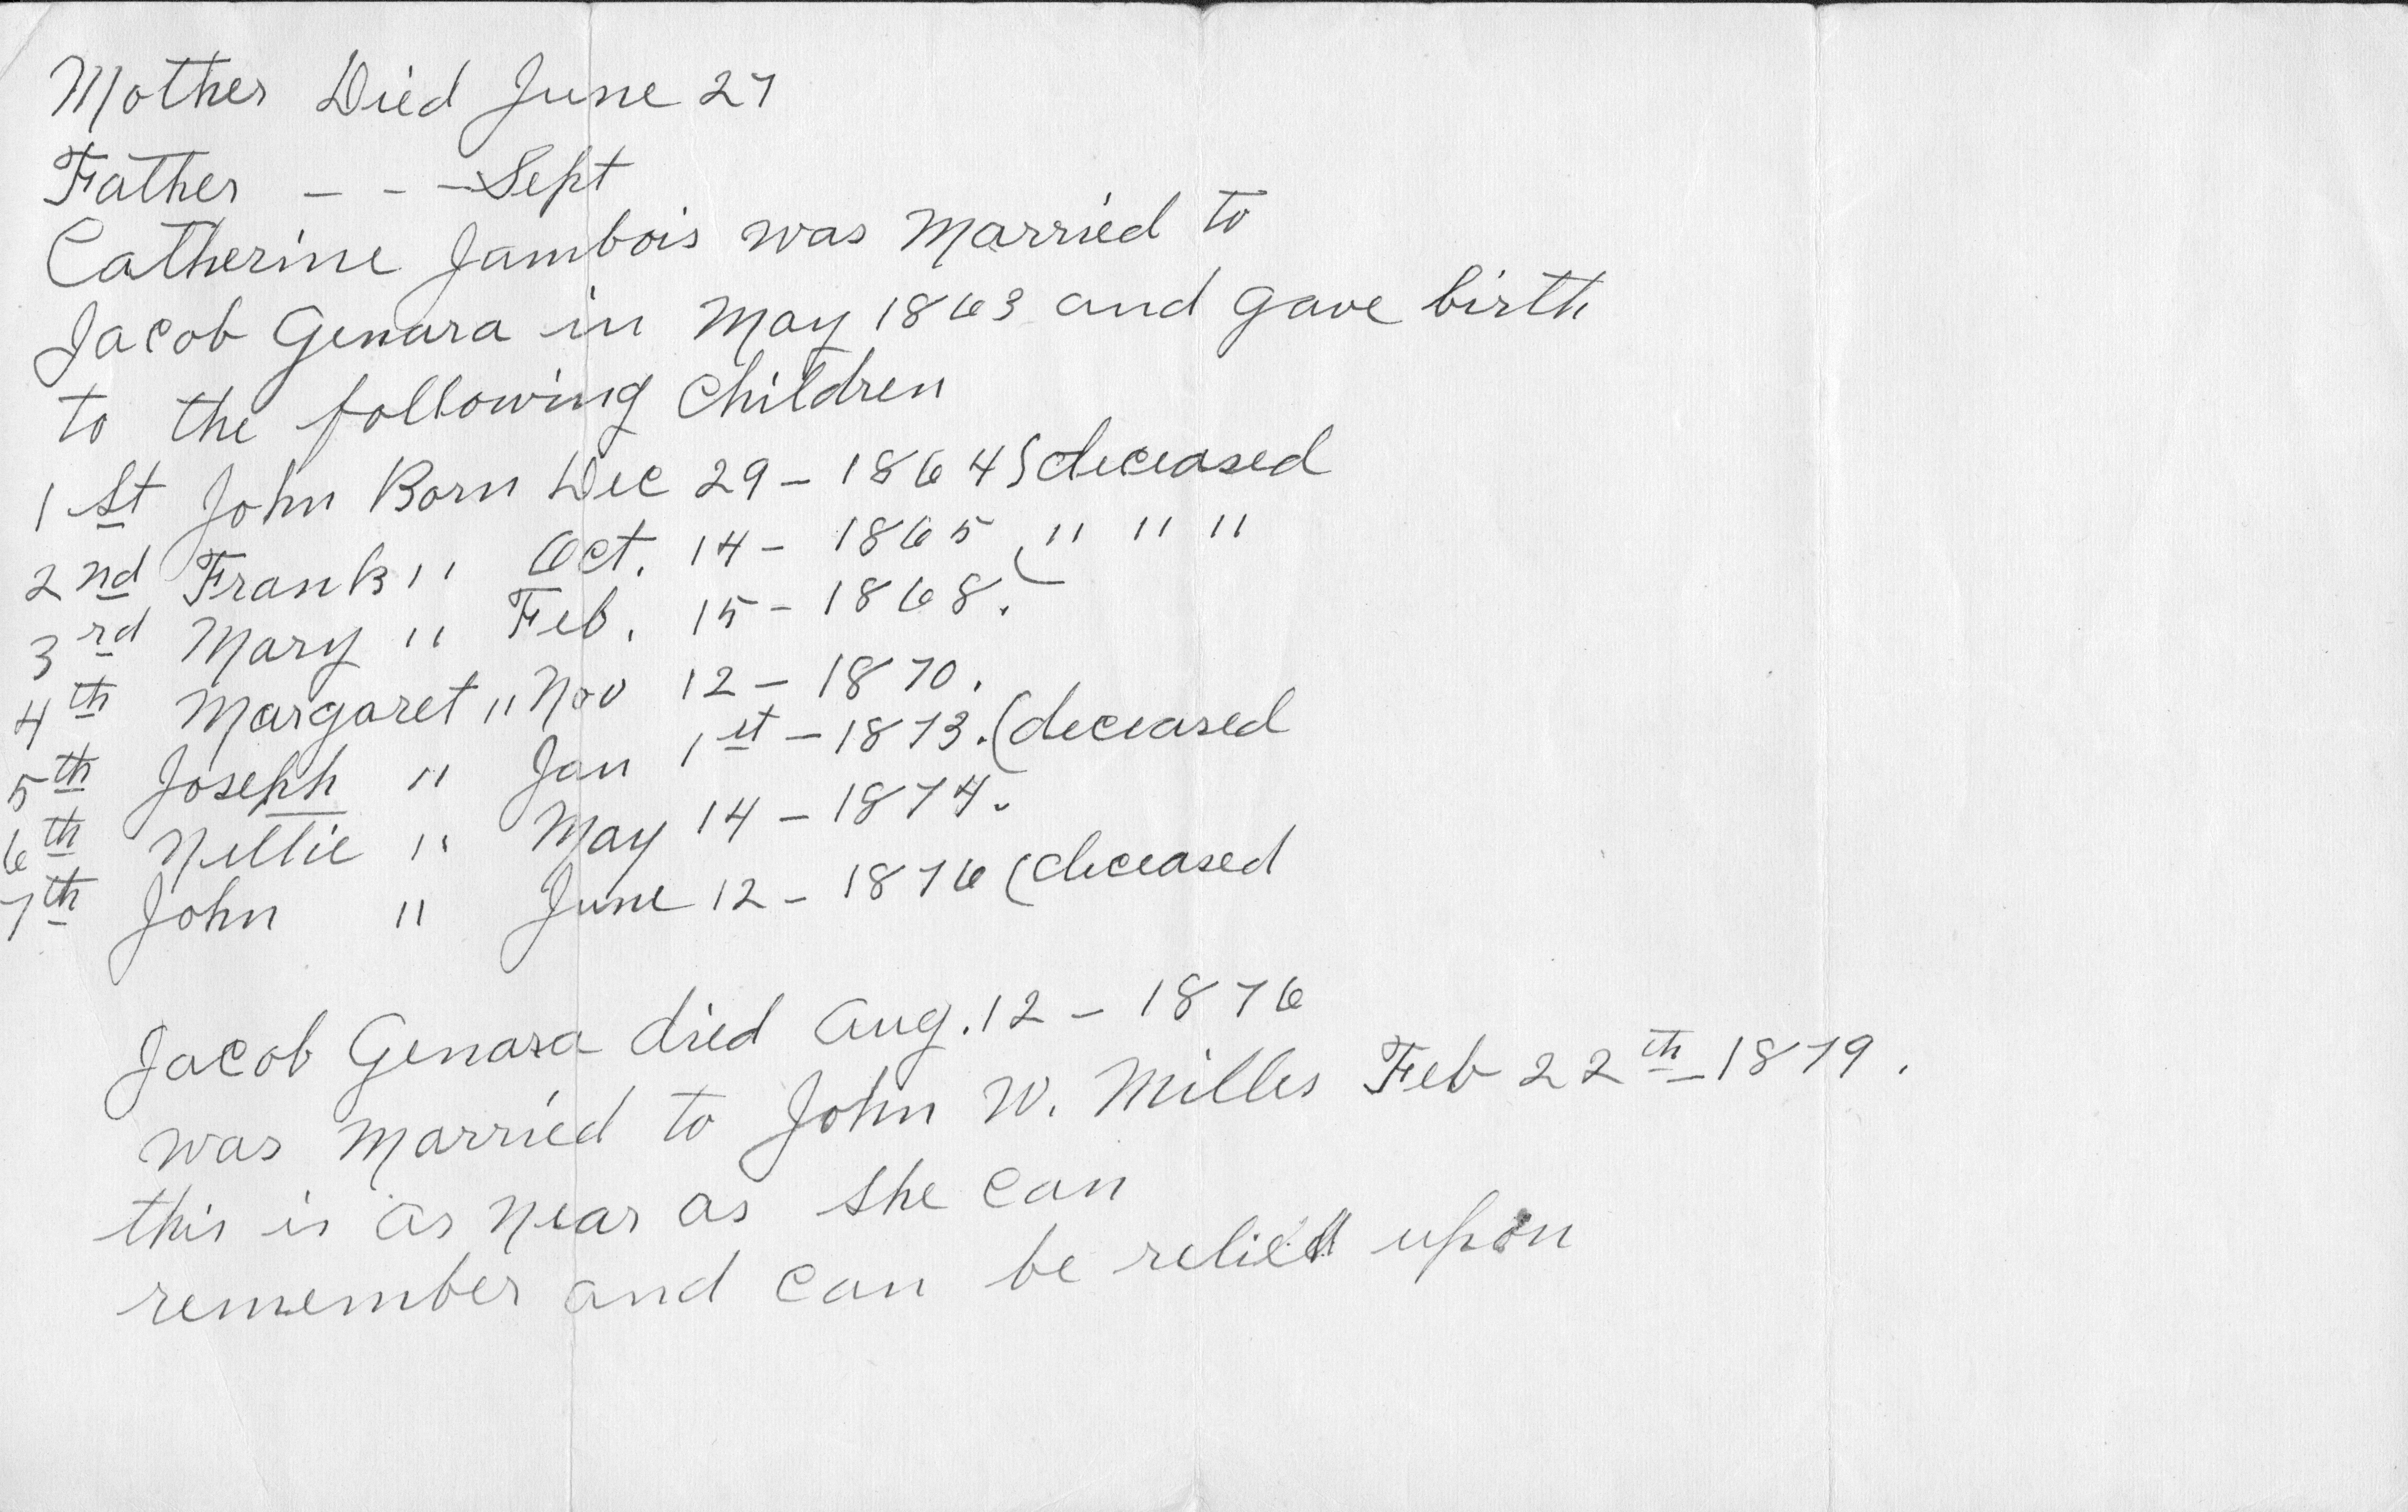 Mother Died June 27
Father - - - Sept
Catherine Jambois was Married to
Jacob Genara in May 1863 and gave birth
to the following Children
1 St John Born Dec 29 - 1864 (deceased
2 nd Frank " Oct. 14 - 1865 ( " " "
3 rd Mary " Feb. 15 - 1868.
4 th Margaret " Nov 12 - 1870.
5 th Joseph " Jan 1 st - 1873. (deceased
6 th Nellie " May 14 - 1874.
7 th John " June 12 - 1876 (deceased
Jacob Genara died Aug. 12 - 1876
was Married to John W. Miller Feb 22 th - 1879.
this is as near as she can
remember and can be relied upon